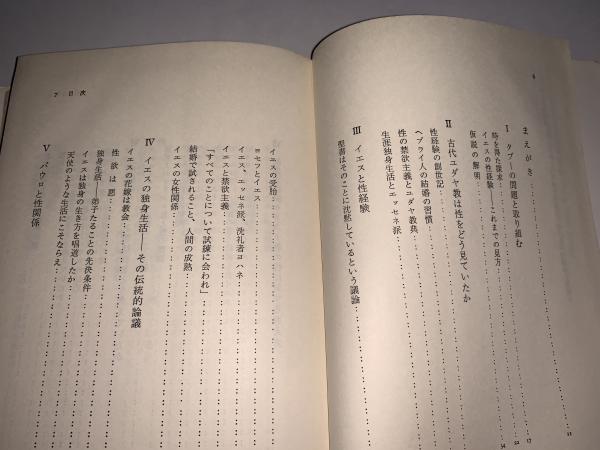 6
まえがき
I タブーの問題と取り組む
時を得た探求
イエスの性経験——これまでの見方
仮説の解明
II 古代ユダヤ教は性をどう見ていたか
性経験の創世記
ヘブライ人の結婚の習慣
性の禁欲主義とユダヤ教典
生涯独身生活とエッセネ派
III イエスと性経験
聖書はそのことに沈黙しているという議論
7 目次
イエスの受胎
ヨセフとイエス
イエス、エッセネ派、洗礼者ヨハネ
イエスと禁欲主義
「すべてのことについて試練に会われ」
結婚で試されること、人間の成熟
イエスの女性関係
IV イエスの独身生活——その伝統的論議
イエスの花嫁は教会
性欲は悪
独身生活——弟子たることの先決条件
イエスは独身の生き方を唱道したか
天使のような生活にこそならえ
V パウロと性関係